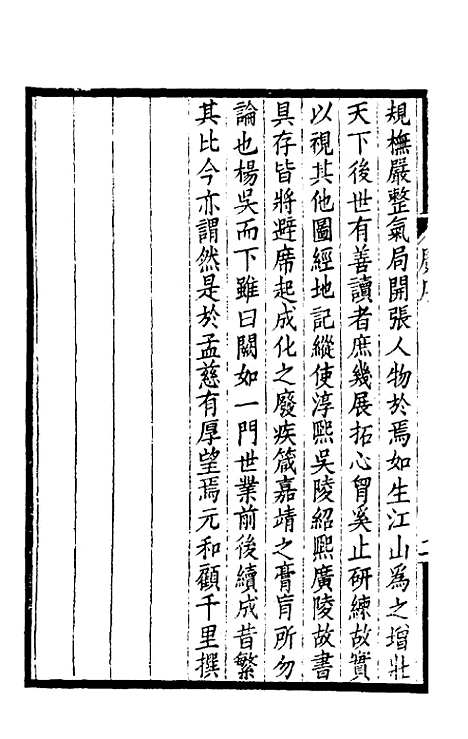 規橅嚴整氣局開張人物於焉如生江山爲之增壯
天下後世有善讀者庶幾展拓心胷奚止研練故實
以視其他圖經地記縱使淳熙吳陵紹熙廣陵故書
具存皆將避席起成化之廢疾箴嘉靖之膏肓所勿
論也楊吳而下雖曰闕如一門世業前後續成昔繁
其比今亦謂然是於孟慈有厚望焉元和顧千里撰